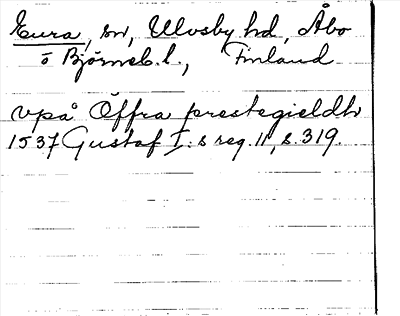 Eura, sn, Ulvsby hd, Åbo
o Björneb. l., Finland
vpå Öffra prestegieldh
1537 Gustaf I:s reg. 11, s. 319.